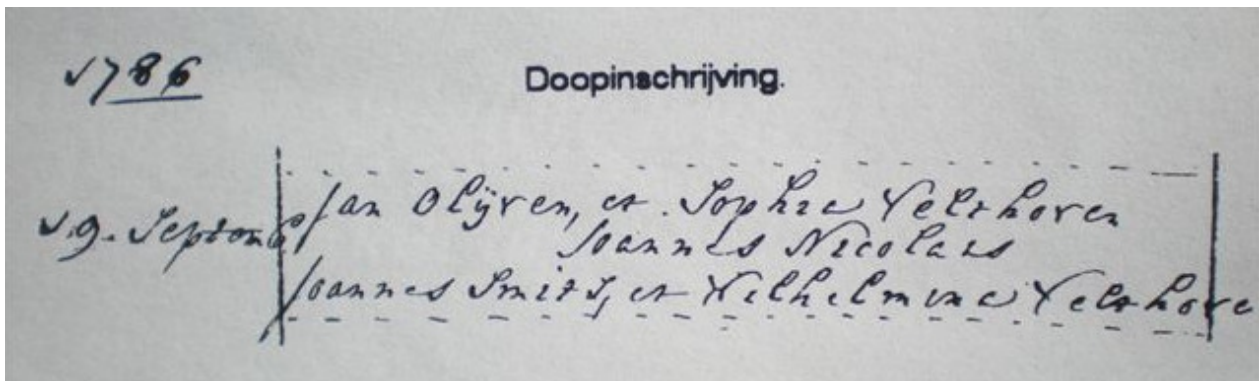 1786
Doopinschrijving.
19. Septemb Jan Olijven, et Sophia Velthoven
Joannes Nicolaus
Joannes Smits, et Wilhelmina Velthove